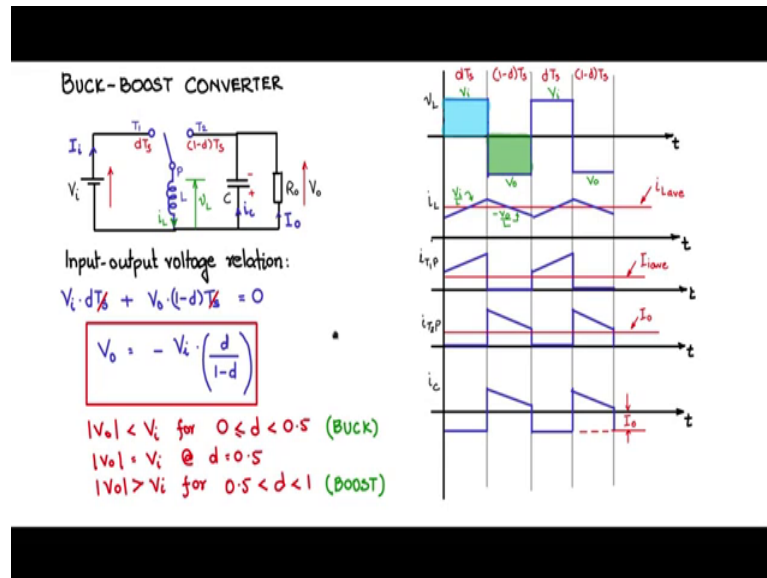 BUCK-BOOST CONVERTER
T1
T2
dTs
(1-d)Ts
Ii
P
Vi
L
vL
iL
C
-
+
ic
Ro
Vo
Io
Input-output voltage relation:
Vi · dTs + Vo · (1-d)Ts = 0
Vo = - Vi · (d/(1-d))
|Vo| < Vi for 0 ≤ d < 0.5 (BUCK)
|Vo| = Vi @ d = 0.5
|Vo| > Vi for 0.5 < d < 1 (BOOST)
dTs (1-d)Ts dTs (1-d)Ts
vL
Vi
Vi
Vo
Vo
t
iL
Vi/L
-Vo/L
iLave
t
iT1P
Iiave
t
iT2P
Io
t
ic
t
Io